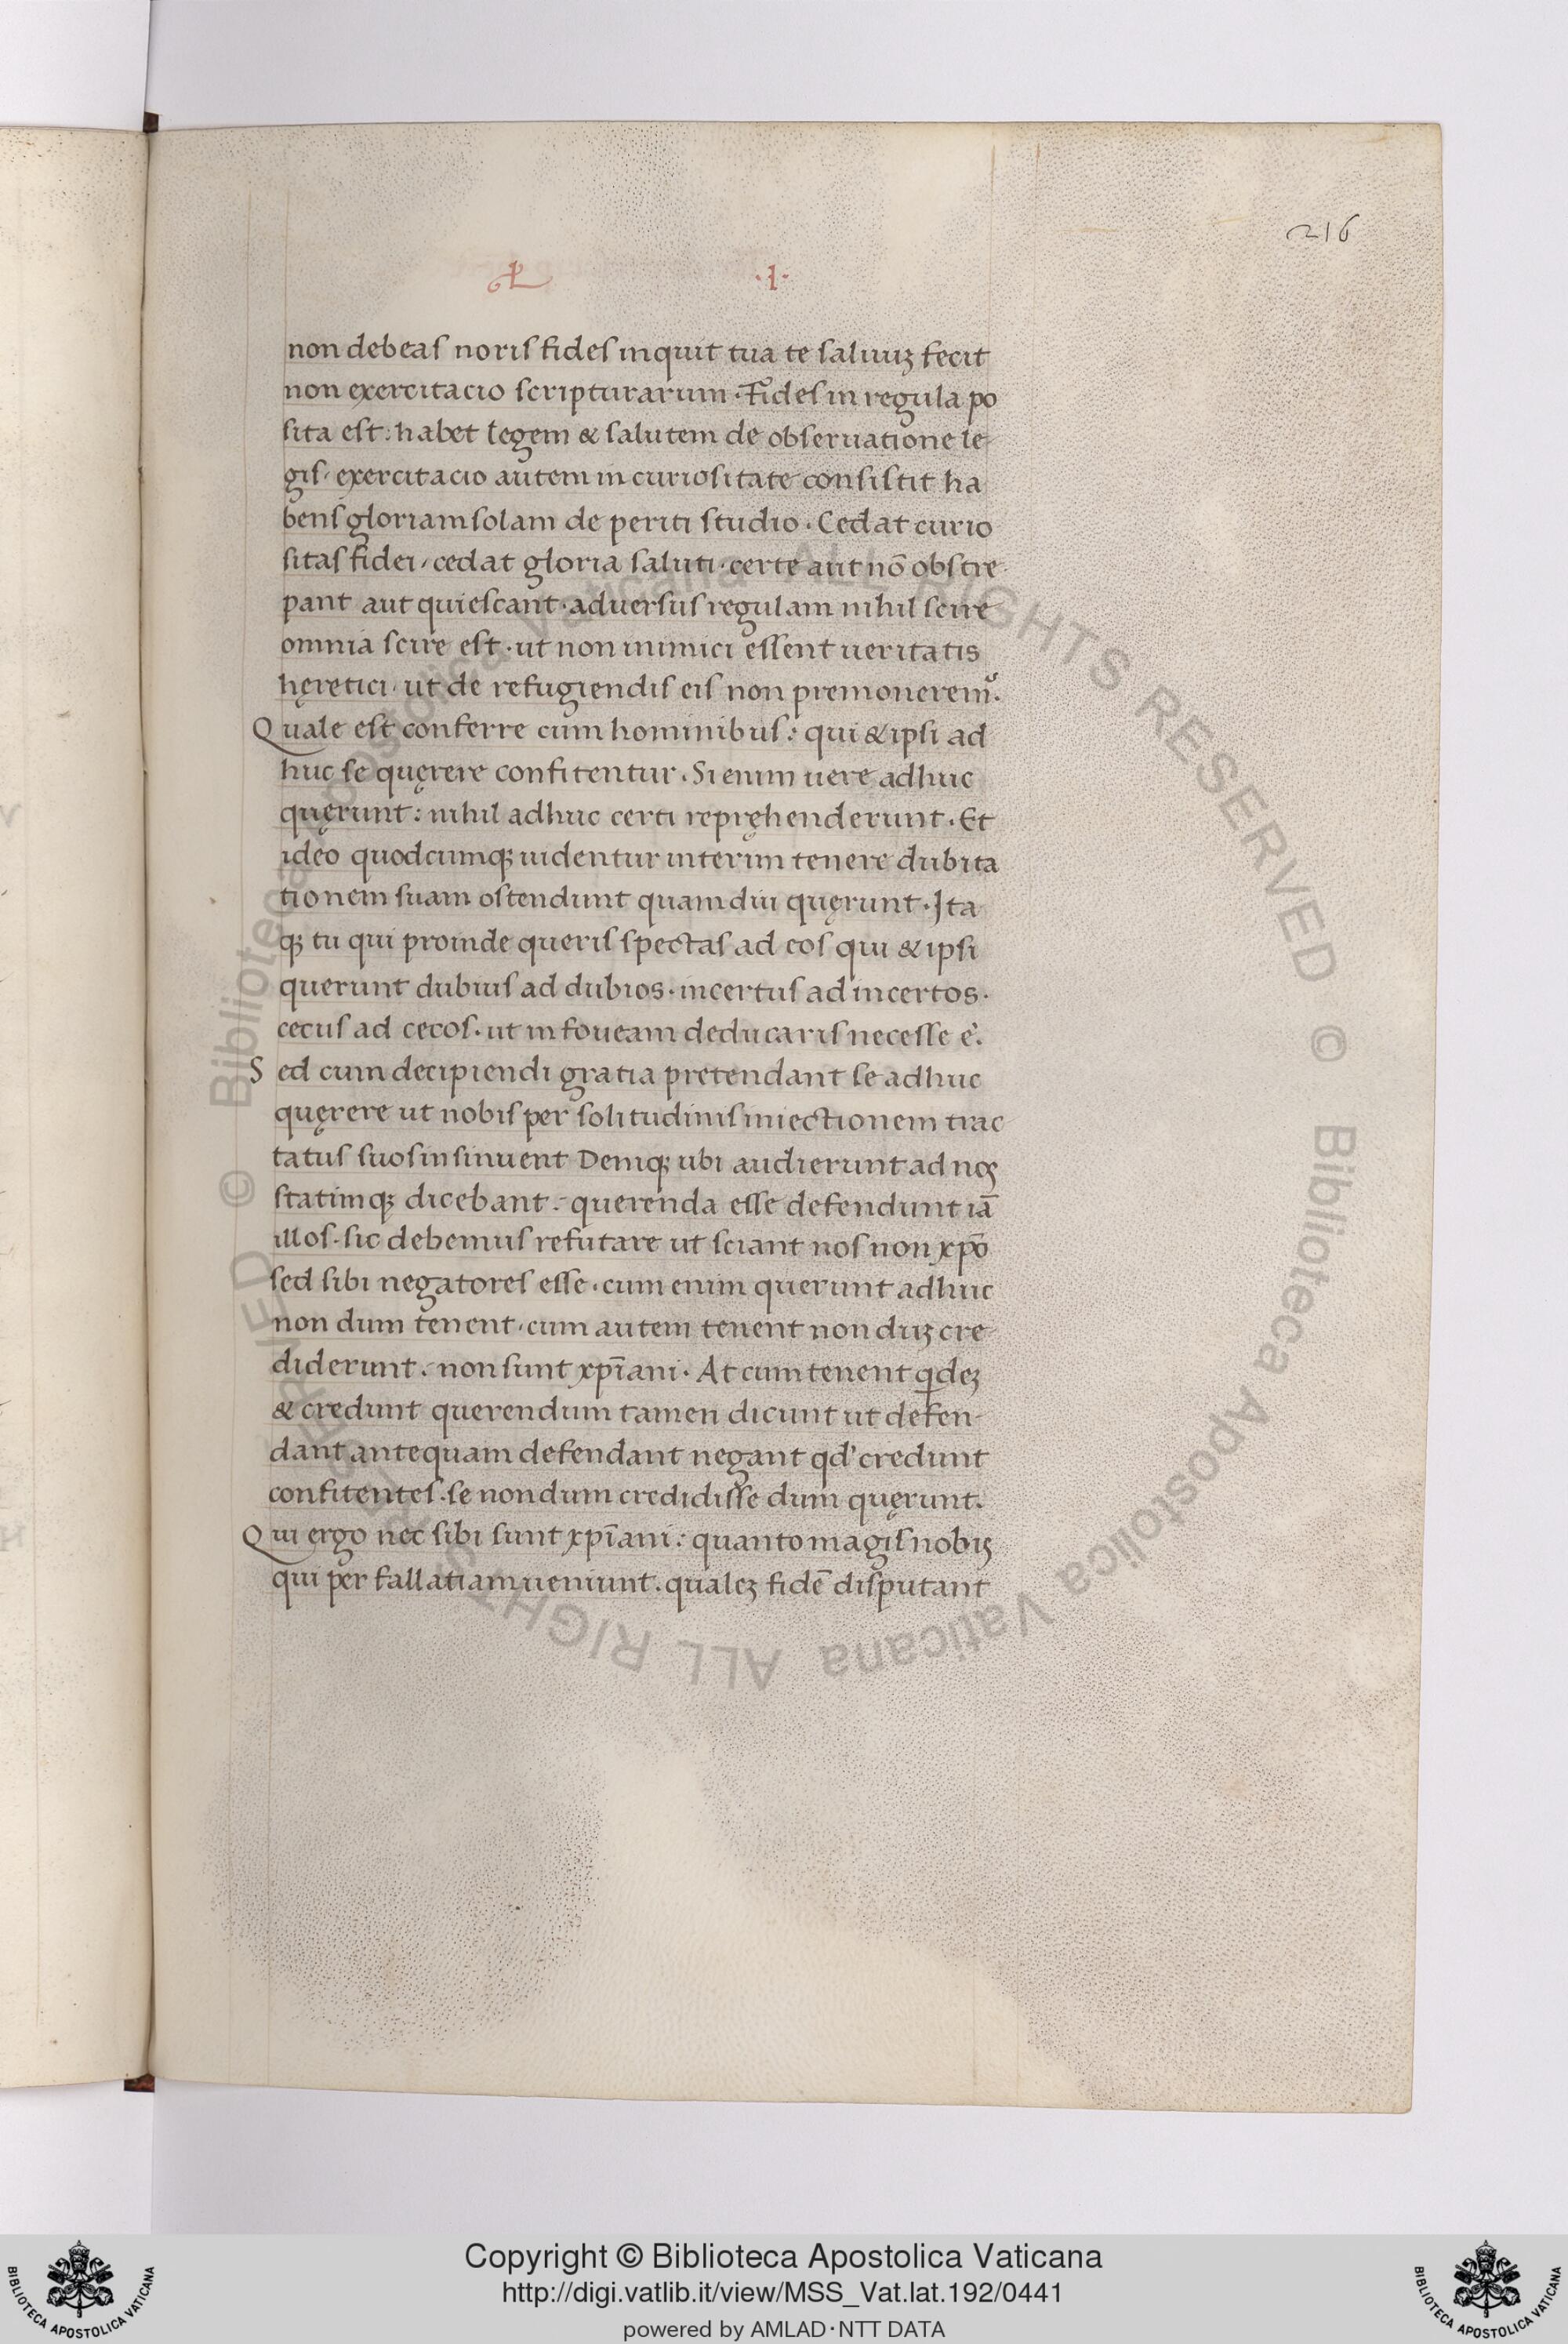 216
L .I.
non debeas noris fides inquit tua te saluuꝫ fecit
non exercitacio scripturarum. Fides in regula po
sita est: habet legem & salutem de obseruatione le-
gis, exercitacio autem in curiositate consistit ha
bens gloriam solam de periti studio. Cedat curio
sitas fidei, cedat gloria saluti. certe aut nō obstre-
pant aut quiescant. aduersus regulam nihil scire
omnia scire est. ut non inimici essent ueritatis
hęretici. ut de refugiendis eis non premonerem᷒.
Quale est conferre cum hominibus: qui & ipsi ad
huc se quęrere confitentur. Si enim uere adhuc
quęrunt: nihil adhuc certi repręhenderunt. Et
ideo quodcumqꝫ uidentur interim tenere dubita
tionem suam ostendunt quamdiu quęrunt. Ita
qꝫ tu qui proinde queris spectas ad eos qui & ipsi
querunt dubius ad dubios. incertus ad incertos.
cecus ad cecos. ut in foueam deducaris necesse ē.
Sed cum decipiendi gratia pretendant se adhuc
quęrere ut nobis per solitudinis iniectionem trac
tatus suos insinuent Deniqꝫ ubi audierunt ad nos
statimqꝫ dicebant. querenda esse defendunt iā
illos. sic debemus refutare ut sciant nos non xp̄o
sed sibi negatores esse. cum enim querunt adhuc
non dum tenent. cum autem tenent non duꝫ cre-
diderunt. non sunt xp̄iani. At cum tenent qͥdeꝫ
& credunt querendum tamen dicunt ut defen-
dant antequam defendant negant qd' credunt
confitentes. se nondum credidisse dum quęrunt.
Qui ergo nec sibi sunt xp̄iani: quanto magis nobis
qui per fallatiam ueniunt. qualeꝫ fidē disputant
© Biblioteca Apostolica Vaticana ALL RIGHTS RESERVED © Biblioteca Apostolica Vaticana ALL RIGHTS RESERVED
Copyright © Biblioteca Apostolica Vaticana
http://digi.vatlib.it/view/MSS_Vat.lat.192/0441
powered by AMLAD·NTT DATA
BIBLIOTECA APOSTOLICA VATICANA
BIBLIOTECA APOSTOLICA VATICANA